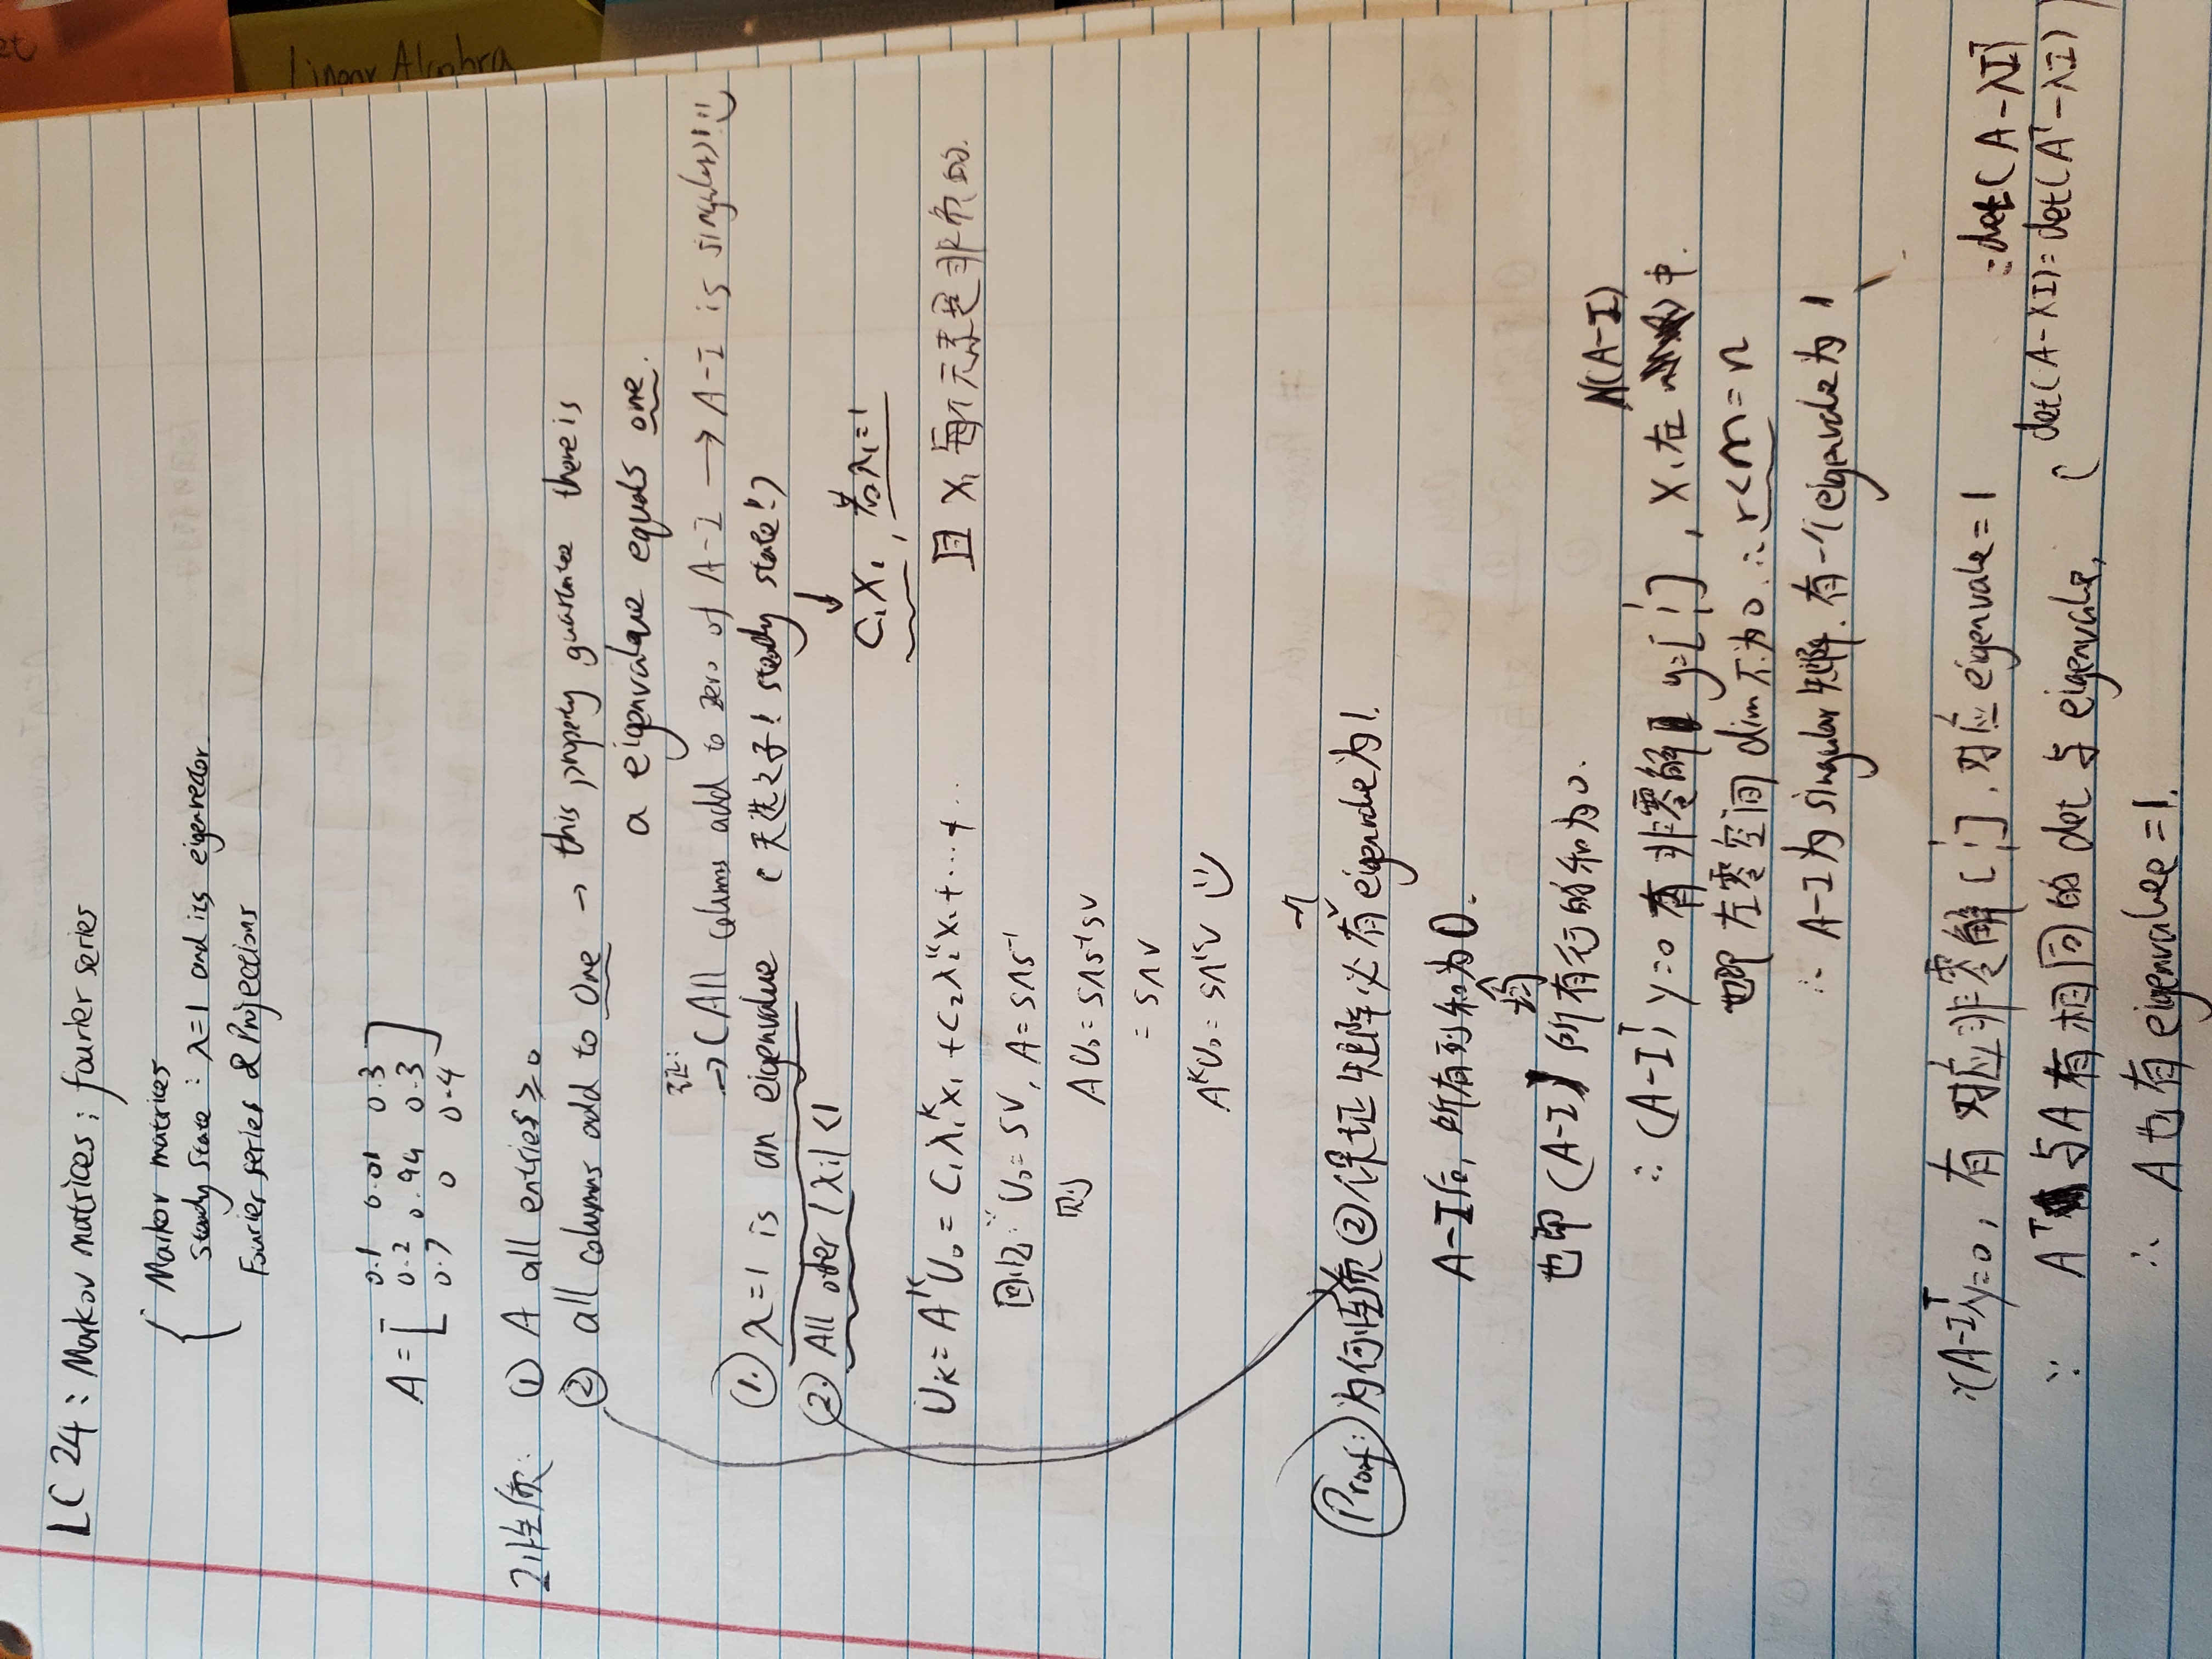 LC 24 : Markov matrices ; fourier series
Markov matrices
Steady State : λ=1 and its eigenvector
Fourier series & Projections
A = [ 0.1 0.01 0.3
0.2 0.94 0.3
0.7 0 0.4 ]
2性质: ① A all entries ≥ 0
② all columns add to One → this property guarantee there is
a eigenvalue equals one.
证:
→ (All columns add to zero of A-I → A-I is singular)!
①. λ=1 is an eigenvalue (天选之子! steady state!)
②. All other |λi| <1
↓
C₁X₁, 若λ₁=1
Uk = A^k U₀ = C₁λ₁^k x₁ + C₂λ₂^k x₂ + ⋯ + ⋯
且 X₁ 每个元素是非负的.
回忆: ∵ U₀ = SV, A = SΛS⁻¹
则 A U₀ = SΛS⁻¹SV
= SΛV
A^k U₀ = SΛ^k V
一个
Proof: 为何性质②保证矩阵必有 eigenvalue 为1.
A-I后, 所有列和为0.
均
也即 (A-I) 所有行的和为0.
N(A-I)
∴ (A-I)ᵀ y=0 有非零解 y=[⋮], X₁在 中.
也即 左零空间 dim 不为0. ∴ r<m=n
∴ A-I为 singular 矩阵. 有一个 eigenvalue 为 1
∵(A-I)ᵀy=0, 有对应非零解 [⋮]. 对应 eigenvale = 1
=det(A-λI)ᵀ
∵ Aᵀ 与A有相同的 det 与 eigenvalue, ( det(A-λI)=det(Aᵀ-λI) )
∴ A也有 eigenvaluee = 1.
Linear Algebra